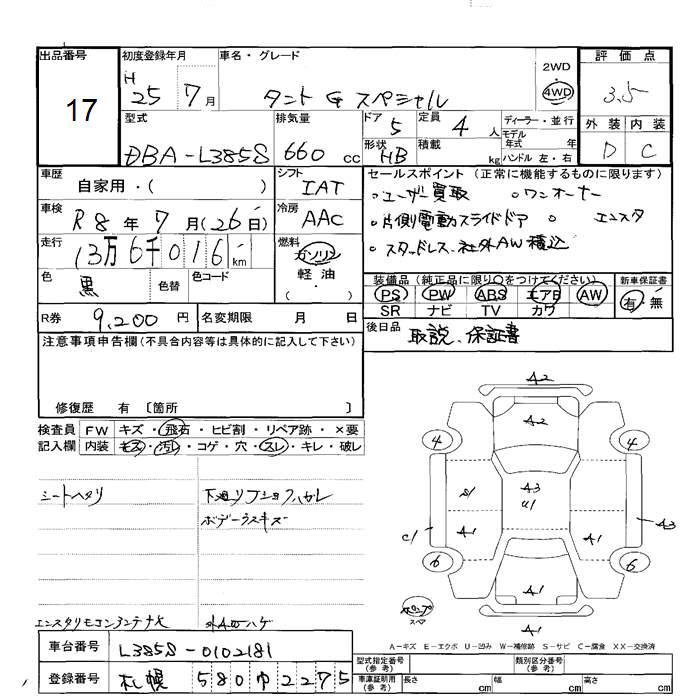 出品番号 初度登録年月 車名・グレード 2WD 評価点
17 H 25 7月 タント G スペシャル 4WD 3.5
型式 排気量 ドア 5 定員 4 人 ディーラー・並行 外装 内装
DBA-L385S 660 cc 形状 HB 積載 kg モデル年式 年 ハンドル 左・右 D C
車歴 自家用・( ) シフト IAT セールスポイント (正常に機能するものに限ります)
車検 R8年 7月(26日) 冷房 AAC 。ユーザー買取 。ワンオーナー
。片側電動スライドドア 。エンスタ
走行 13万6千016km 燃料 ガソリン 軽油 ・( ) ・スタッドレス.社外AW積込
色 黒 色替 色コード 装備品 (純正品に限り○をつけてください) 新車保証書
PS PW ABS エアB AW 有・無
R券 9,200円 名変期限 月 日 SR ナビ TV カワ
注意事項申告欄(不具合内容等は具体的に記入して下さい) 後日品 取説、保証書
修復歴 有 〔箇所 〕
検査員 FW キズ・飛石・ヒビ割・リペア跡・×要
記入欄 内装 キズ・汚れ・コゲ・穴・スレ・キレ・破レ
A2
A2
4 4
S1 A3 U1
C1 A1 A1 A3
6 6
A1
A1
シートヘタリ 下廻り
ボデーウスキズ
スペア
エンスタリモコンアンテナ欠 外AWハゲ
A-キズ E-エクボ U-凹み W-補修跡 S-サビ C-腐食 XX-交換済
車台番号 L385S-0102181
型式指定番号 (参考) 類別区分番号 (参考)
登録番号 札幌 580 2275
車庫証明用 (参考) 長さ cm 幅 cm 高さ cm